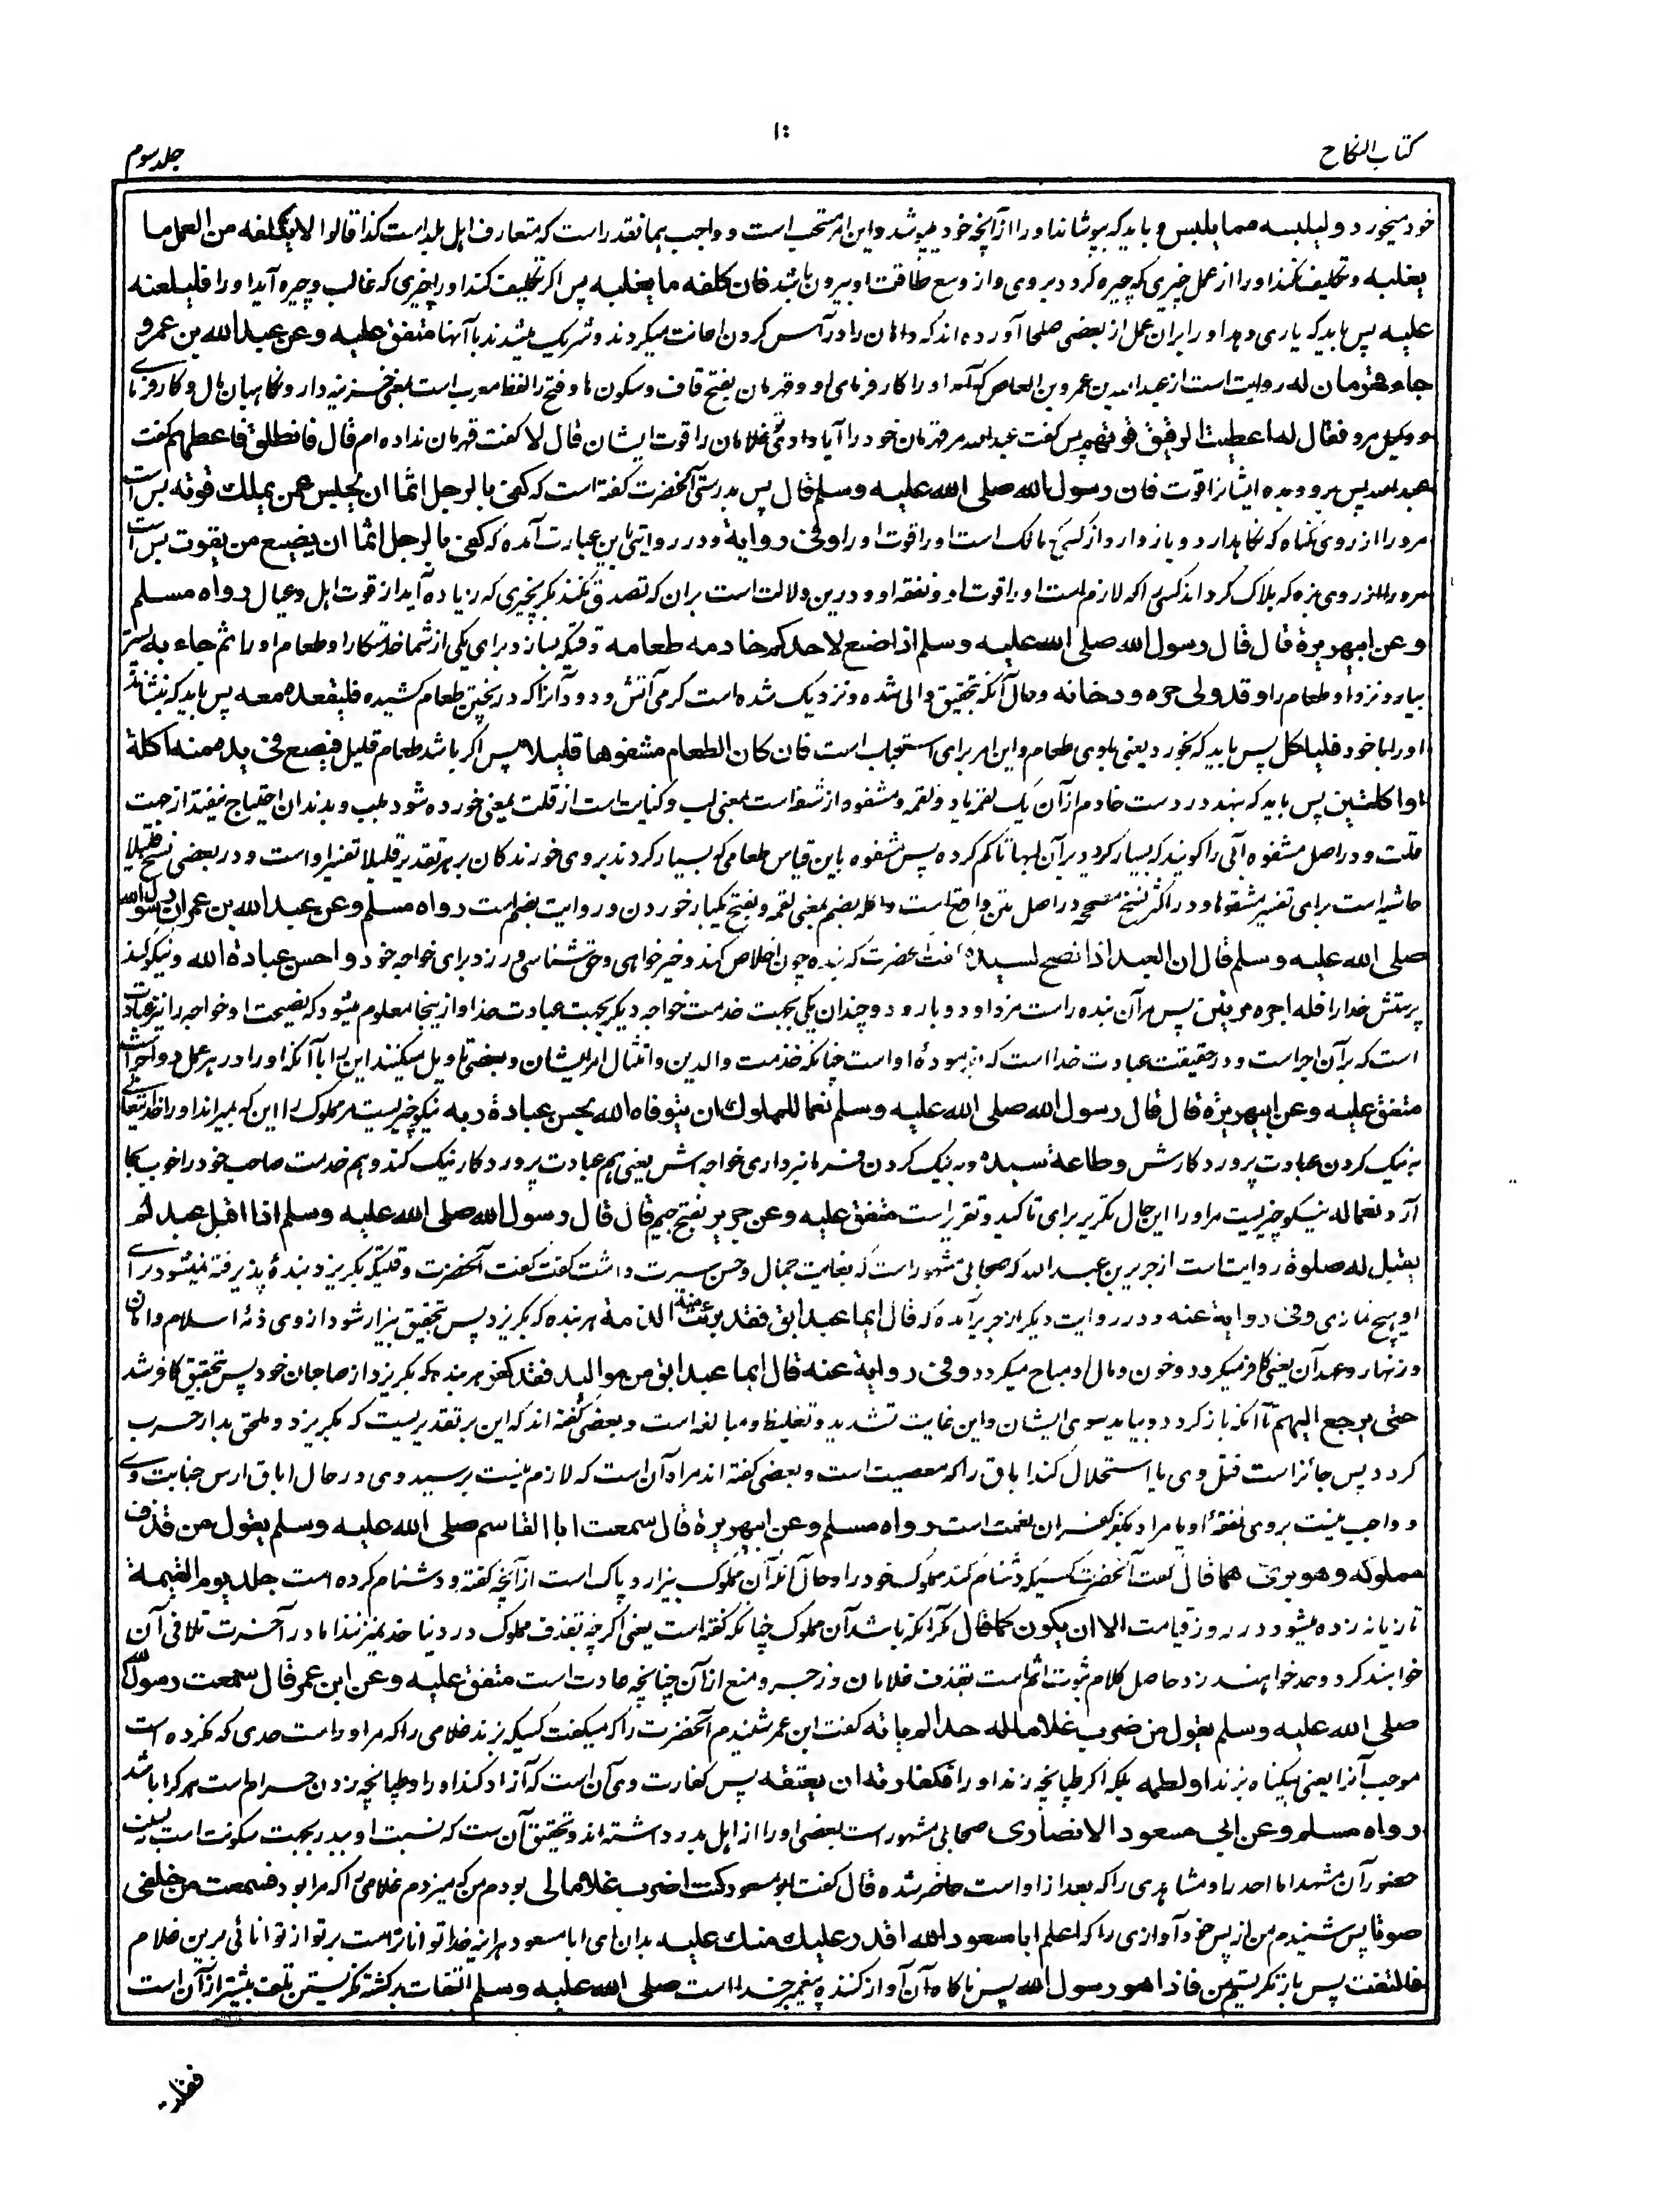 کتاب النکاح
جلد سوم
خود میخورد و لیلبسه مما یلبس و باید که بپوشاند او را از آنچه خود میپوشد و این امر مستحب است و واجب همانقدر است که متعارف اهل بلد است کذا قالوا لا یکلفه من العمل ما
یغلبه و تکلیف نکند او را از عمل چیزی که چیره گردد بروی و از وسع طاقت او بیرون باشد فان کلفه ما یغلبه پس اگر تکلیف کند او را بچیزی که غالب و چیره آید او را فلیعنه
علیه پس باید که یاری دهد او را بران عمل از بعضی صلحا آورده اند که را در آس کردن اعانت میکردند و شریک میشدند با آنها متفق علیه و عن عبد الله بن عمرو
جاءه قهرمان له روایت است از عبد الله بن عمرو بن العاص که آمد او را کارفرمای او و قهرمان بفتح قاف و سکون ها و فتح را لفظ معرب است بمعنی خزینه دار و نگاهبان مال و کارفرمای
و وکیل مرو فقال له اعطیت الرقیق قوتهم پس گفت عبد الله مر قهرمان خود را آیا دادی تو غلامان را قوت ایشان قال لا گفت قهرمان نداده ام قال فانطلق فاعطهم گفت
عبد الله پس برو و بده ایشانرا قوت فان رسول الله صلی الله علیه وسلم قال پس بدرستی آنحضرت گفته است که کفی بالرجل اثما ان یحبس عمن یملک قوته بس است
مرد را از روی گناه که نگاهدارد و باز دارد از کسی که مالک است او را قوت او را و فی روایة و در روایتی باین عبارت آمده که کفی بالرجل اثما ان یضیع من یقوت بس است
مرد را از روی بزه که هلاک گرداند کسی را که لازم است او را قوت او و نفقه او و درین دلالت است بران که تصدق نکند مگر بچیزی که زیاده آید از قوت اهل و عیال رواه مسلم
و عن ابیهریرة قال قال رسول الله صلی الله علیه وسلم اذا صنع لاحدکم خادمه طعامه وقتیکه بسازد برای یکی از شما خدمتکار او طعام او را ثم جاءه به پستر
بیارد نزد او طعام را و قد ولی حره و دخانه و حال آنکه بتحقیق والی شده و نزدیک شده است گرمی آتش و دود آنرا که در پختن طعام کشیده فلیقعده معه پس باید که بنشاند
او را با خود فلیاکل پس باید که بخورد یعنی باوی طعام و این امر برای استحباب است فان کان الطعام مشفوها قلیلا پس اگر باشد طعام قلیل فلیضع فی یده منه اکلة
او اکلتین پس باید که بنهد در دست خادم از آن یک لقمه یا دو لقمه و مشفوه از شفه است بمعنی لب و کنایت است از قلت یعنی خورده شود بلب و بدندان احتیاج نیفتد از جهت
قلت و در اصل مشفوه آبی را گویند که بسیار گردد بر آن لبها تا کم کرده پس مشفوه باین قیاس طعامی که بسیار گردند بروی خورندگان بر هر تقدیر قلیلا تفسیر اوست و در بعضی نسخ قلیلا
حاشیه است برای تفسیر مشفوها و در اکثر نسخ مصححه در اصل متن واقع است و اکله بضم بمعنی لقمه و بفتح یکبار خوردن و روایت بضم است رواه مسلم و عن عبد الله بن عمر ان رسول الله
صلی الله علیه وسلم قال ان العبد اذا نصح لسیده گفت آنحضرت که بنده چون اخلاص کند و خیرخواهی و حق شناسی ورزد برای خواجه خود و احسن عبادة الله و نیکو کند
پرستش خدا را فله اجره مرتین پس مر آن بنده راست مزد او دو بار و دو چندان یکی بجهت خدمت خواجه دیگر بجهت عبادت خدا و از ینجا معلوم میشود که نصیحت او خواجه را نیز عبادت
است که بر آن اجر است و در حقیقت عبادت خدا است که فرموده او است چنانکه خدمت والدین و امتثال امر ایشان و بعضی تاویل میکنند این را با آنکه او را در هر عمل دو اجر است
متفق علیه و عن ابیهریرة قال قال رسول الله صلی الله علیه وسلم نعما للمملوک ان یتوفاه الله بحسن عبادة ربه نیکو چیزیست مر مملوک را این که بمیراند او را خدایتعالی
به نیک کردن عبادت پروردگارش و طاعة سیده و به نیک کردن فرمانبرداری خواجه اش یعنی هم عبادت پروردگار نیک کند و هم خدمت صاحب خود را خوب بجا
آرد نعما له نیکو چیزیست مر او را این حال تکریر برای تاکید و تقریر است متفق علیه و عن جریر بفتح جیم قال قال رسول الله صلی الله علیه وسلم اذا ابق العبد لم
یقبل له صلوة روایت است از جریر بن عبد الله که صحابی مشهور است که بغایت جمال و حسن سیرت داشت گفت گفت آنحضرت وقتیکه بگریزد بنده پذیرفته نمیشود برای
او هیچ نمازی و فی روایة عنه و در روایت دیگر از جریر آمده که قال ایما عبد ابق فقد برئت منه الذمة هر بنده که بگریزد پس بتحقیق بیزار شود از وی ذمه اسلام و امان
و زنهار و عهد آن یعنی کافر میگردد و خون و مال او مباح میگردد و فی روایة عنه قال ایما عبد ابق من موالیه فقد کفر هر بنده که بگریزد از صاحبان خود پس بتحقیق کافر شد
حتی یرجع الیهم تا آنکه باز گردد و بیاید بسوی ایشان و این غایت تشدید و تغلیظ و مبالغه است و بعضی گفته اند که این بر تقدیریست که بگریزد و ملحق بدار حرب
گردد پس جائز است قتل وی یا استحلال کند اباق را که معصیت است و بعضی گفته اند مراد آن است که لازم نیست بر سید وی در حال اباق ارش جنایت وی
و واجب نیست بروی نفقه او یا مراد بکفر کفران نعمت است رواه مسلم و عن ابیهریرة قال سمعت ابا القاسم صلی الله علیه وسلم یقول من قذف
مملوکه و هو بریء مما قال گفت آنحضرت کسیکه دشنام کند مملوک خود را و حال آنکه آن مملوک بیزار و پاک است از آنچه گفته و دشنام کرده است جلد یوم القیمة
تازیانه زده میشود در روز قیامت الا ان یکون کما قال مگر آنکه باشد آن مملوک چنانکه گفته است یعنی اگرچه بقذف مملوک در دنیا حد نمیزنند اما در آخرت تلافی آن
خواهند کرد و حد خواهند زد حاصل کلام ثبوت اثم است بقذف غلامان و زجر و منع از آن چنانچه عادت است متفق علیه و عن ابن عمر قال سمعت رسول الله
صلی الله علیه وسلم یقول من ضرب غلاما له حدا لم یاته گفت ابن عمر شنیدم آنحضرت را که میگفت کسیکه بزند غلامی را که مر او راست حدی که نکرده است
موجب آنرا یعنی بیگناه بزند او لطمه بلکه اگر طپانچه زند او را فکفارته ان یعتقه پس کفارت وی آن است که آزاد کند او را و طپانچه زدن حرام است هر کرا باشد
رواه مسلم و عن ابی مسعود الانصاری صحابی مشهور است بعضی او را از اهل بدر داشته اند و تحقیق آن ست که نسبت او ببدر بجهت سکونت است نه بجهت
حضور آن مشهد اما احد را و مشاهدی را که بعد از او است حاضر شده قال گفت ابو مسعود کنت اضرب غلاما لی بودم من که میزدم غلامی را که مرا بود فسمعت من خلفی
صوتا پس شنیدم من از پس خود آوازی را که اعلم ابا مسعود لله اقدر علیک منک علیه بدان ای ابا مسعود هر آینه خدا تواناتر است بر تو از توانائی تو برین غلام
فالتفت پس باز نگریستم من فاذا هو رسول الله پس ناگاه آن آواز کننده پیغمبر خدا است صلی الله علیه وسلم التفات برگشته نگریستن تلفت بیشتر از آن است
فقلت